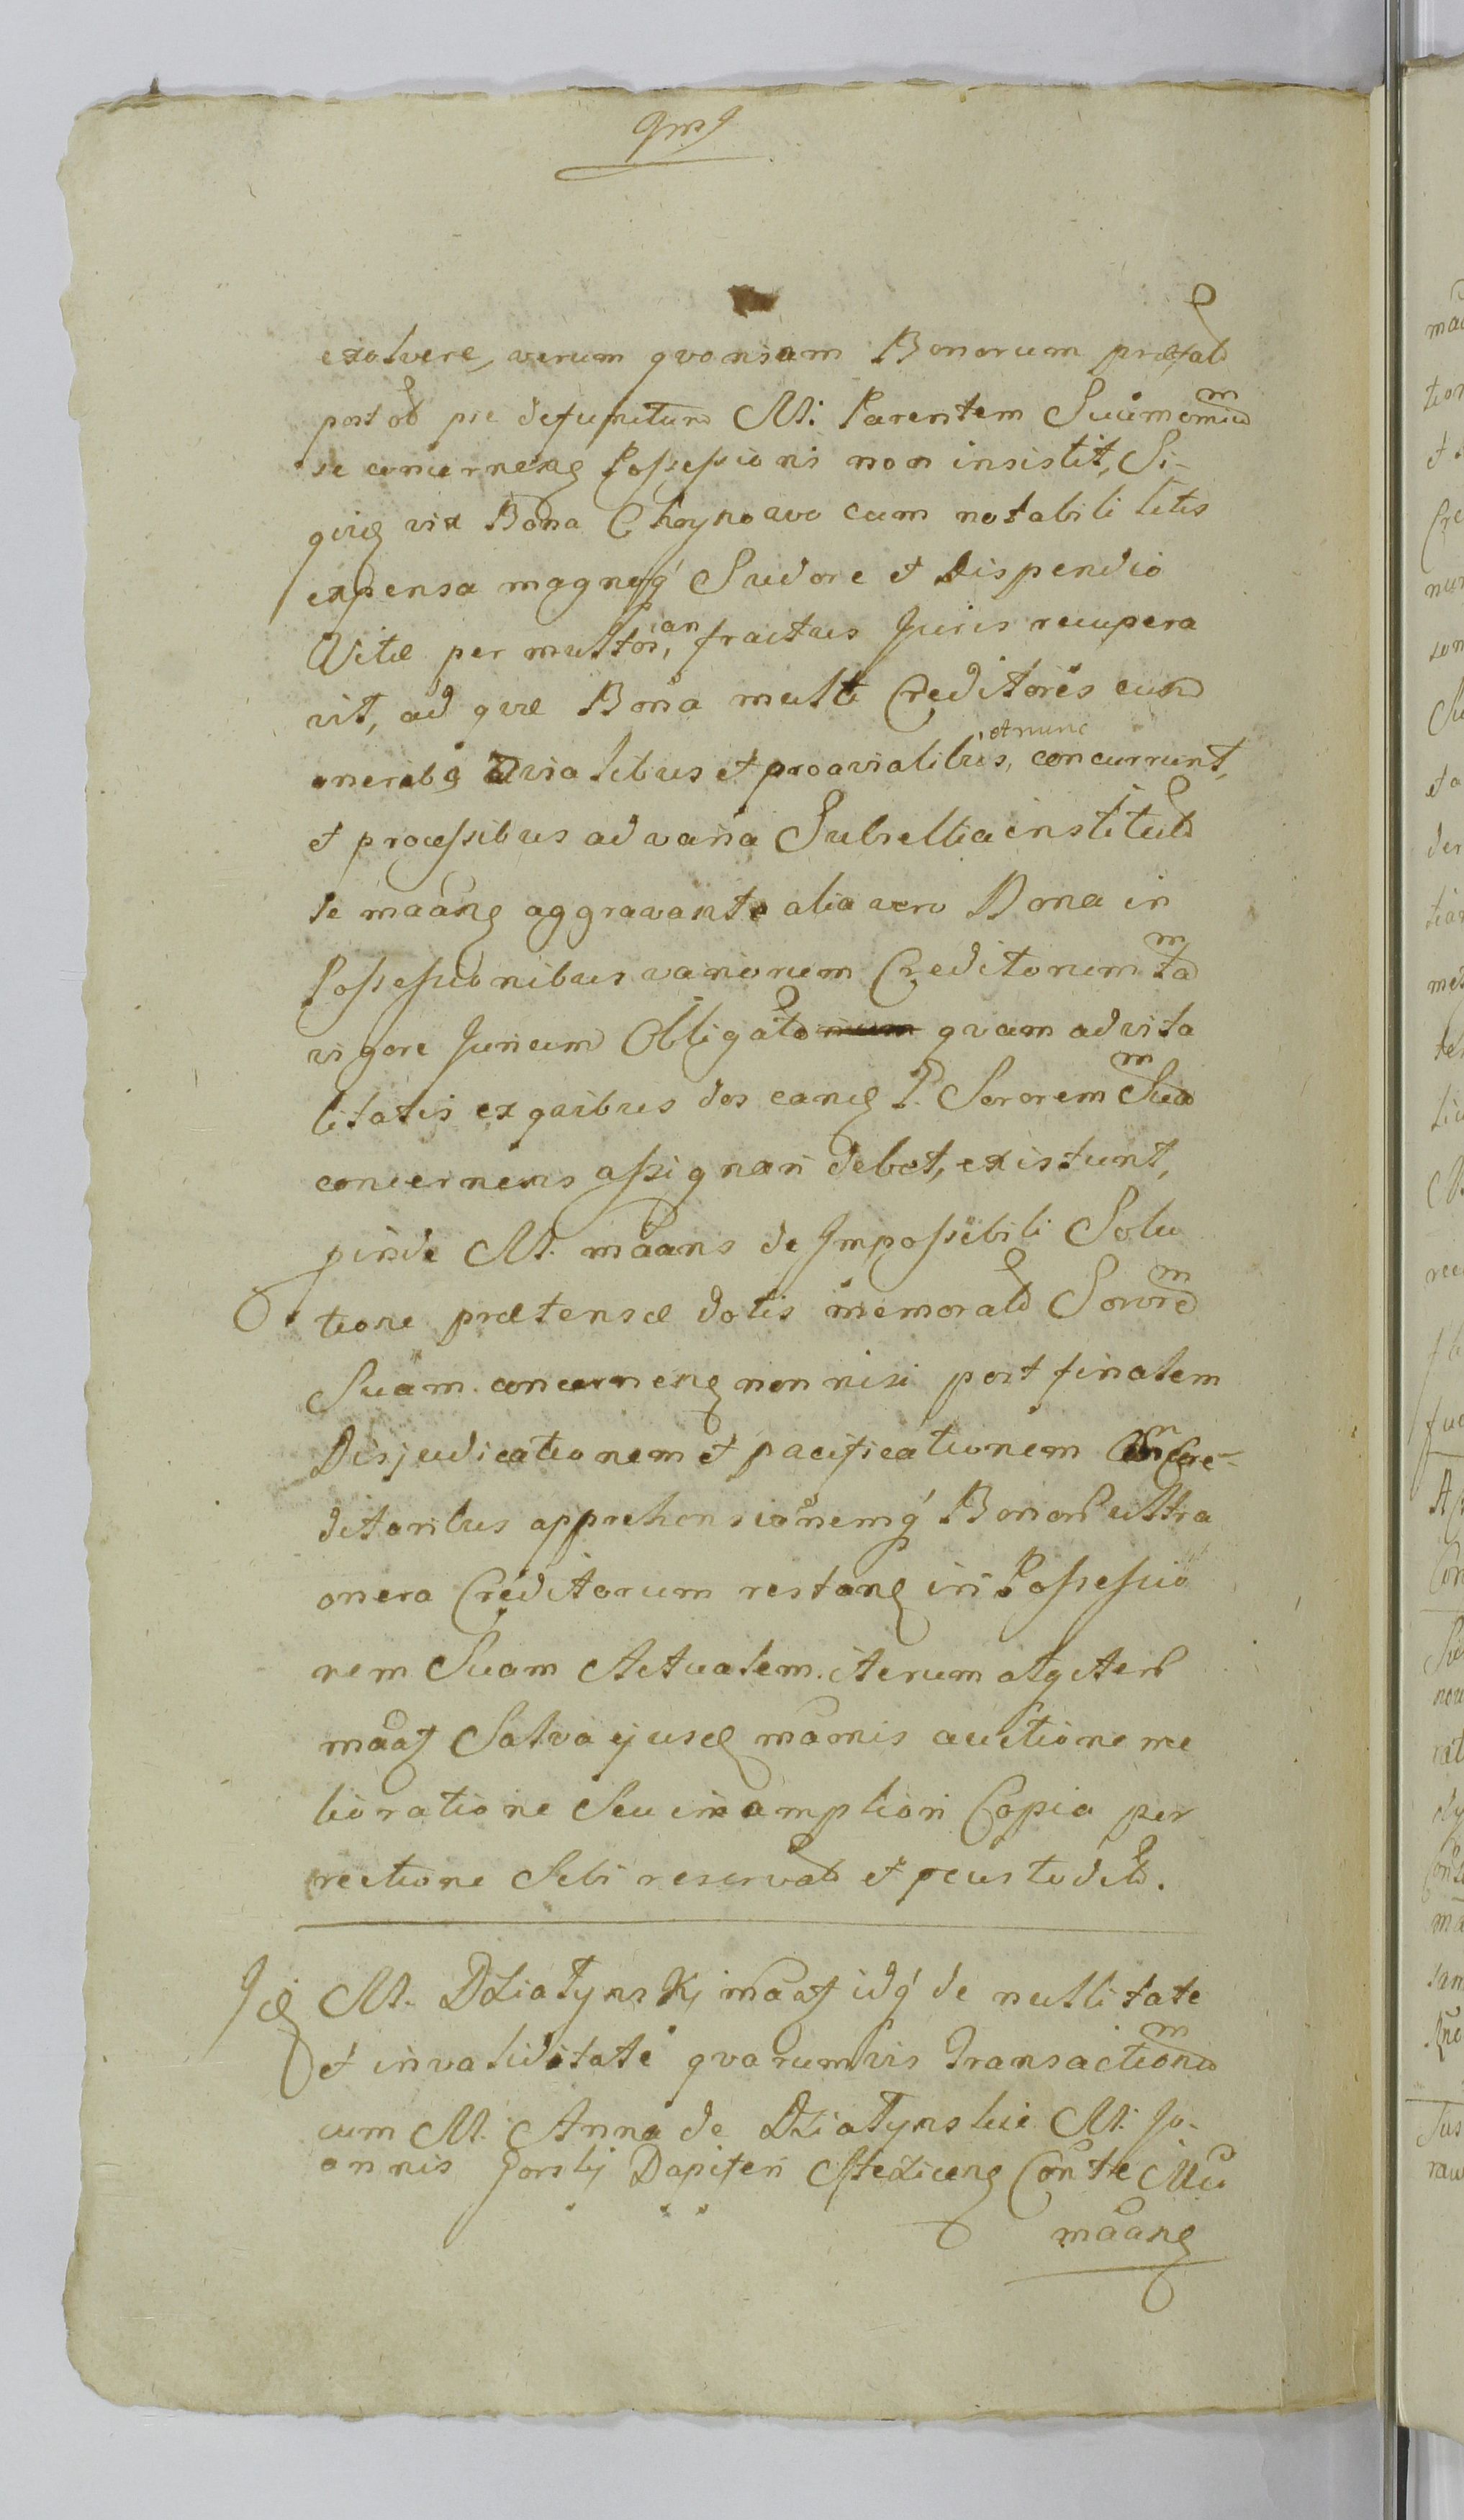 exolvere, verum qvoniam Bonorum præfat
post ob præ defunctum M: Parentem Suum omiu
se concerneñ Possessioni non insistit, Si-
qvid vix Bona Choynowo cum notabili litis
expensa magnoq' Sudore et Dispendio
Vitæ per multos, an fractus Juris recupera
vit, ad qvæ Bona multi Creditores cum
et nunc
onerib9 avialibus et proavialibus, concurrunt,
et processibus ad varia Subsellia institut
se maañ aggravant alia vero Bona in
Possessionibus variorum Creditorum ta
vigore Jurium Obligato qvam advita
litatis ex qvibus dos eand P. Sororem Sua
concernens assignari debet, existunt,
pinde M. maans de Impossibili Solu
tione prætensæ dotis memorat Soror
Suam concerneñ non nisi post finalem
Disjudicationem et pacificationem cum Cre-
ditoribus apprehensionemq' Bonor ultra
onera Creditorum restañ in Possessio
nem Suam Actualem iterum atq iter
maat Salva ejusd manis auctione me
lioratione Seu in ampliori Copia per
rectione Sibi reservat et pcustodit.
Id M. Dziatynskj maat idq' de nullitate
et invaliditate qvarumvis Transaction
cum M. Anna de Dziatynskie M. Jo-
annis Gorskj Dapiferi Conte Mu
maañ